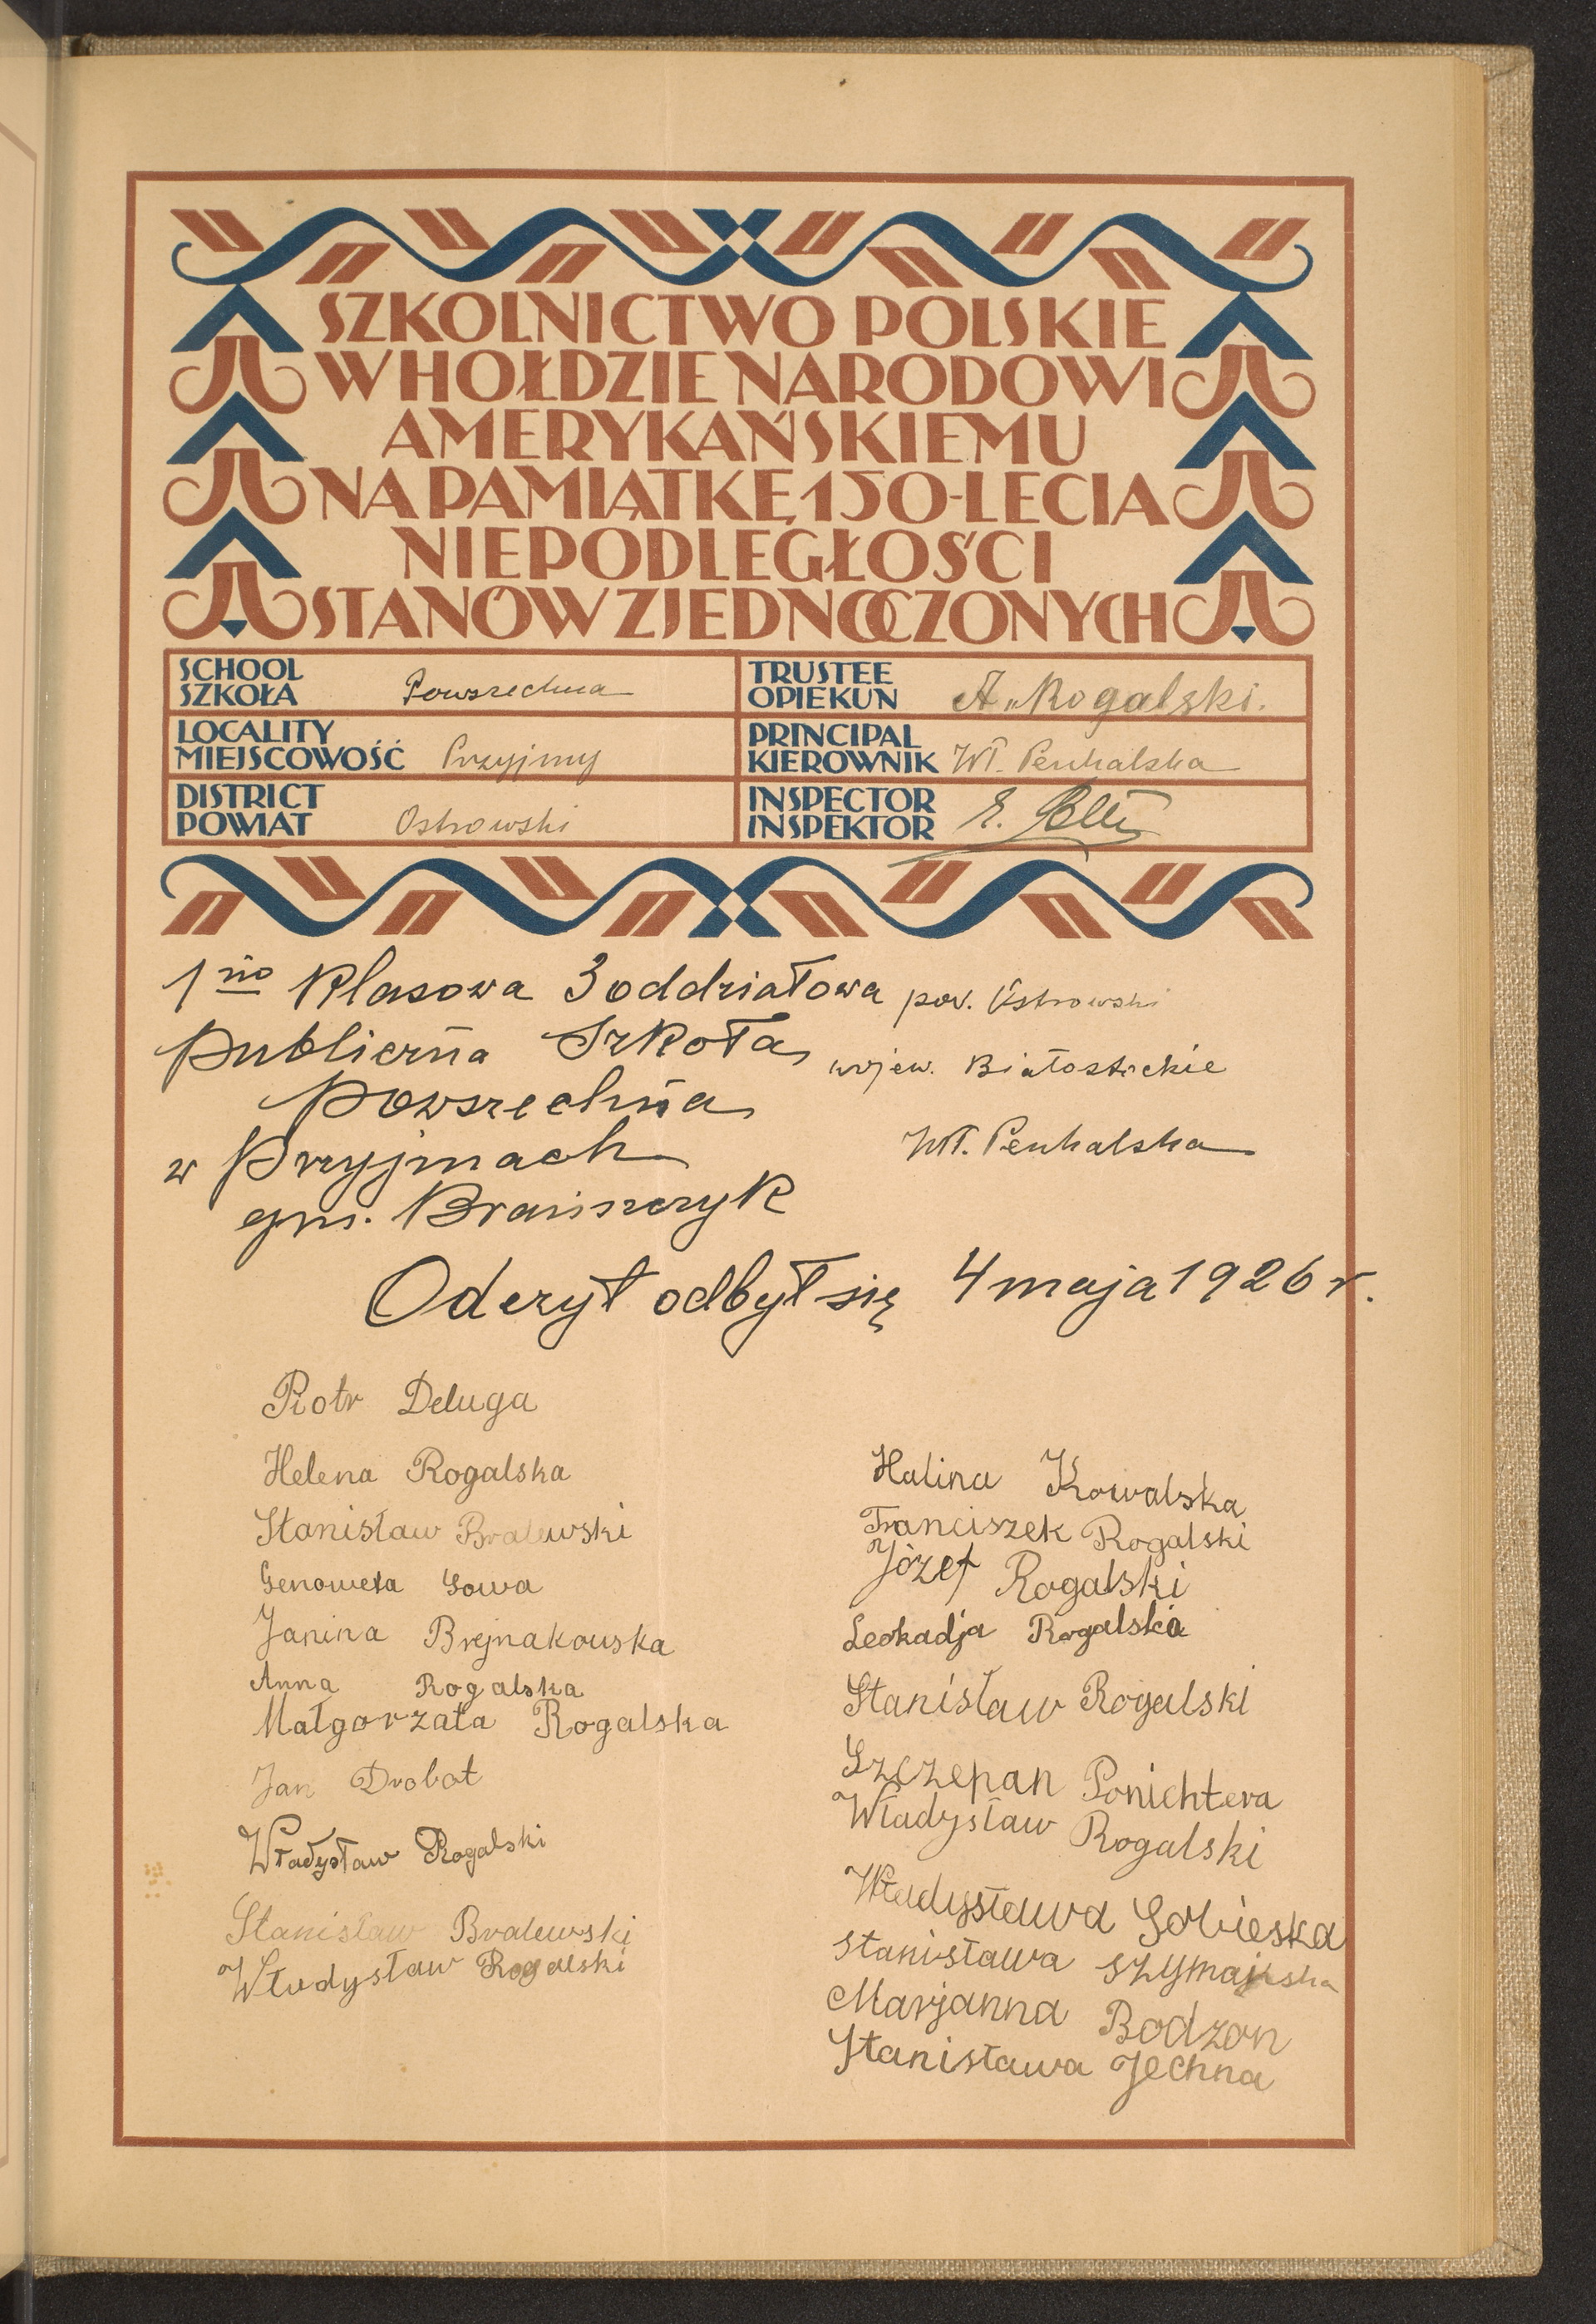 SZKOLNICTWO POLSKIE
W HOŁDZIE NARODOWI
AMERYKAŃSKIEMU
NA PAMIĄTKĘ 150-LECIA
NIEPODLEGŁOŚCI
STANÓW ZJEDNOCZONYCH
SCHOOL
SZKOŁA Powszechna
TRUSTEE
OPIEKUN A. Rogalski.
LOCALITY
MIEJSCOWOŚĆ Przyjmy
PRINCIPAL
KIEROWNIK Wł. Penhalska
DISTRICT
POWIAT Ostrowski
INSPECTOR
INSPEKTOR E.
1no Klasowa 3 oddziałowa pow. Ostrowski
Publiczna Szkoła wojew. Białostockie
Powszechna
w Przyjmach Wł. Penhalska
gm. Brańszczyk
Odczyt odbył się 4 maja 1926 r.
Piotr Deluga
Helena Rogalska
Stanisław Bralewski
Genowefa Sowa
Janina Brejnakowska
Anna Rogalska
Małgorzata Rogalska
Jan Drobot
Władysław Rogalski
Stanisław Bralewski
Władysław Rogalski
Halina Kowalska
Franciszek Rogalski
Józef Rogalski
Leokadja Rogalska
Stanisław Rogalski
Szczepan Ponichtera
Władysław Rogalski
Władysława Sobieska
Stanisława Szymańska
Marjanna Bodzon
Stanisława Jechna